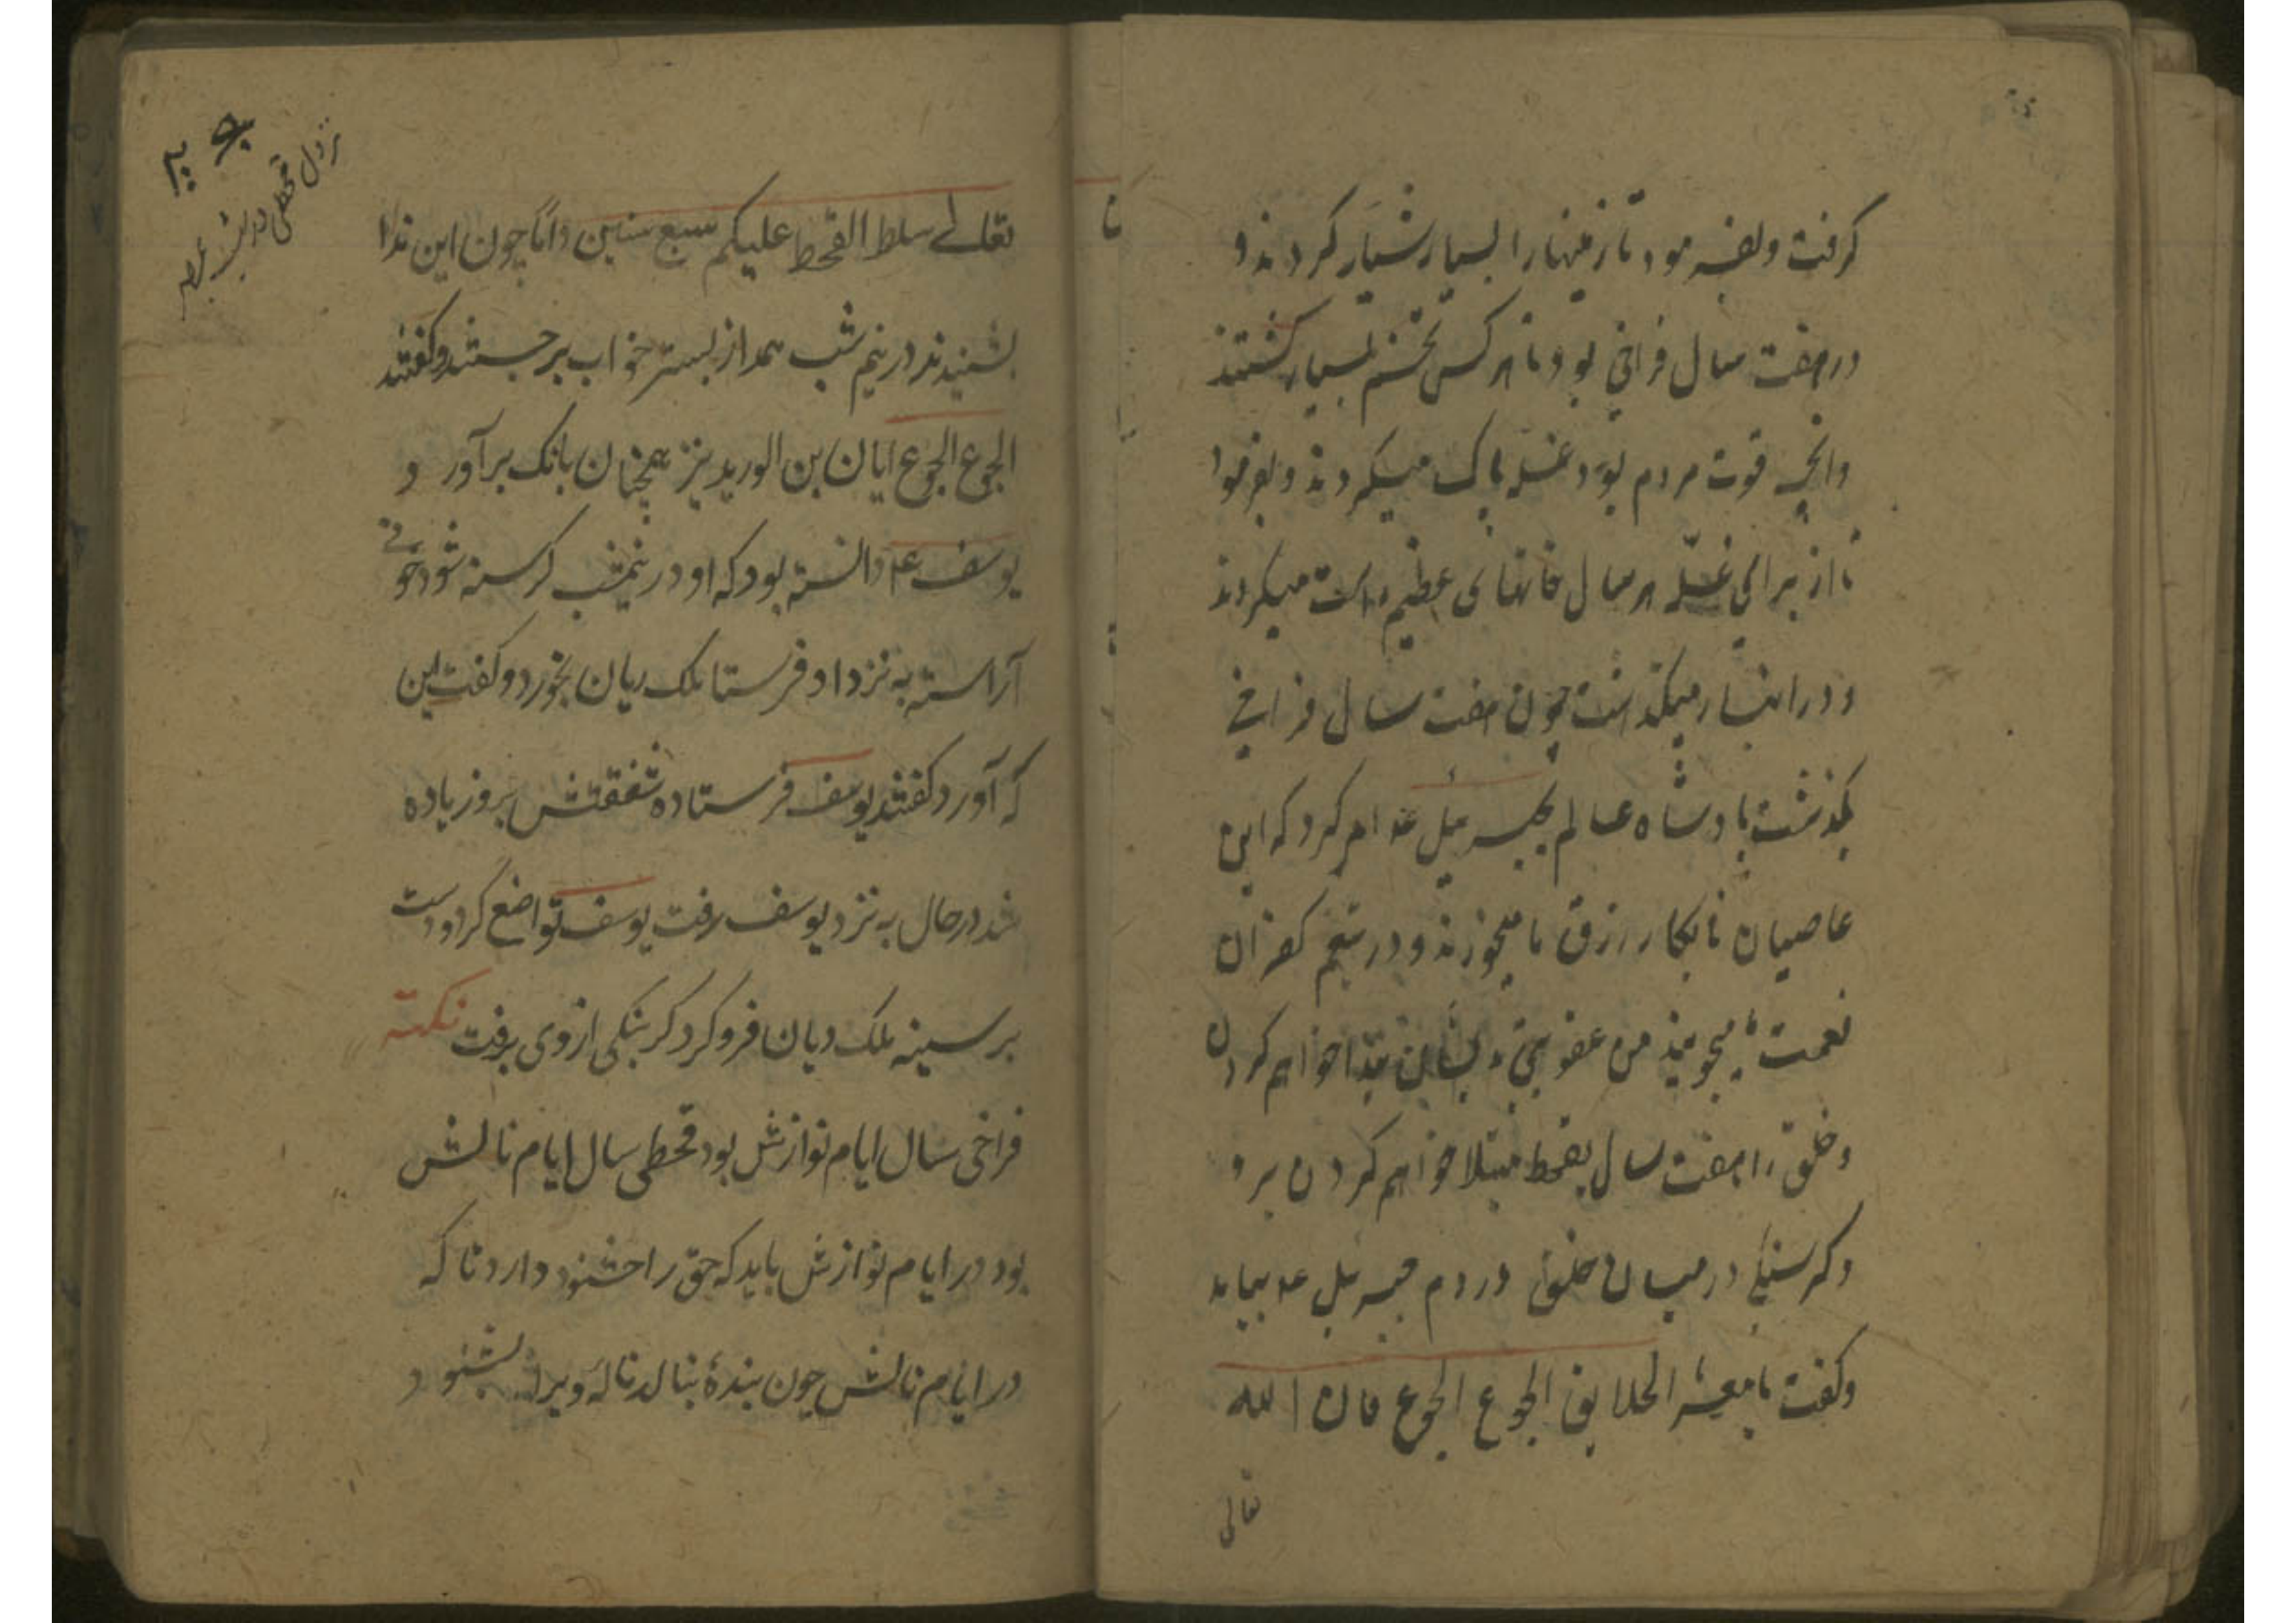 کرفت و بفرمود تا زمینها را بسیار شیار کردند و
در هفت سال فراخی بود تا هر کس تخم بسیار کشتند
وانچه قوت مردم بود غله پاک میکردند و بفرمود
تا از برای غله هر سال خانهای عظیم راست میکردند
و در انبار میکذاشت چون هفت سال فراخی
بکذشت پادشاه عالم بجبرئیل عم امر کرد که این
عاصیان نابکار رزق ما میخورند و در نعیم کفران
نعمت ما میجویند من عقوبتی بدیشان مبتلا خواهم کردن
و خلق را هفت سال بقحط مبتلا خواهم کردن برو
و کرسنکی در میان خلق در دم جبرئیل عم بیامد
و کفت یا معشر الخلایق الجوع الجوع فان الله
تعالی
نزول قحطی در
تعالے سلط القحط علیکم سبع سنین داباً چون این ندا
بشنیدند در نیم شب همه از بستر خواب برجستند و کفتند
الجوع الجوع ایان بن الورید نیز همچنان بانک برآورد و
یوسف عم دانسته بود که او در نیمشب کرسنه شود خوانے
آراسته به نزد او فرستا ملک ریان بخورد و کفت این
که آورد کفتند یوسف فرستاده شفقتش برو زیاده
شد در حال به نزد یوسف رفت یوسف تواضع کرد و دست
بر سینه ملک ریان فرو کرد کرسنکی از وی برفت نکته
فراخی سال ایام نوازش بود قحطی سال ایام نالش
بود در ایام نوازش باید که حق را خشنود دارد تا که
در ایام نالش چون بندهٔ بنالد نالهٔ ویرا بشنود